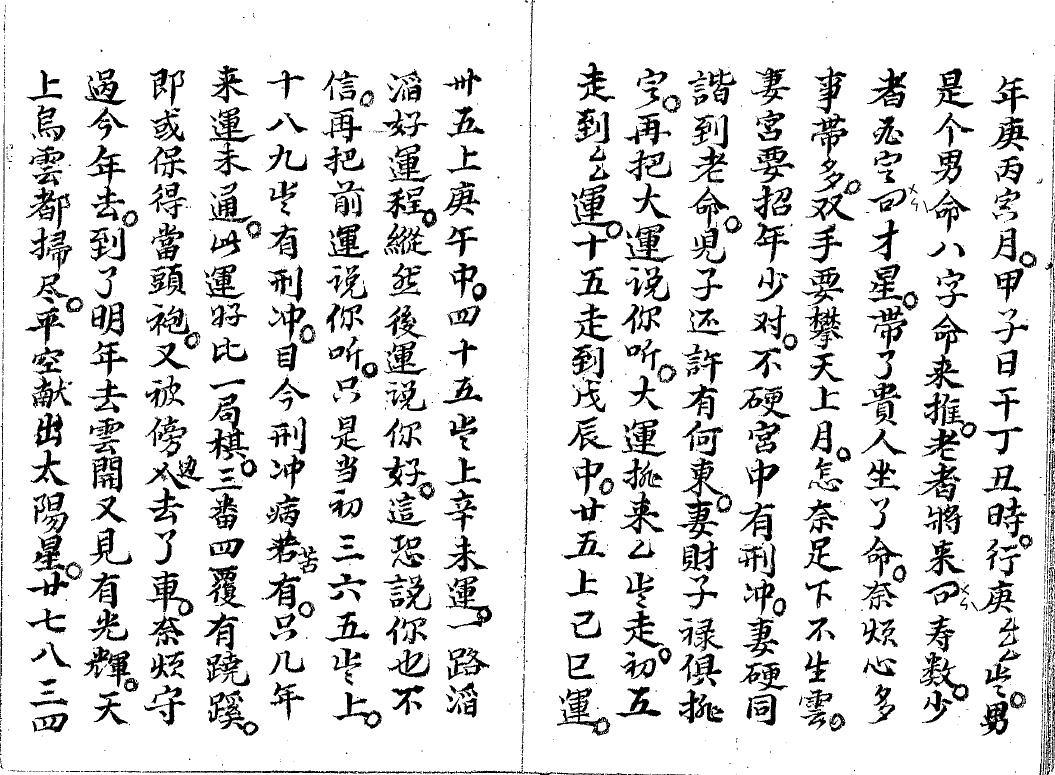 年庚丙寅月。甲子日干丁丑時。行庚歲。男
是个男命八字命来推。老者將来问寿数。少
者问才星。帶了貴人坐了命。奈煩心多
事帶多。双手要攀天上月。怎奈足下不生雲。
妻宮要招年少对。不硬宮中有刑冲。妻硬同
諧到老命。児子还許有何東。妻財子禄俱排
定。再把大運说你听。大運排来乙歲走。初五
走到乙運。十五走到戊辰中。廿五上己巳運。
卅五上庚午中。四十五歲上辛未運。一路滔
滔好運程。縱然後運说你好。這恐説你也不
信。再把前運说你听。只是当初三六五歲上。
十八九歲有刑冲。目今刑冲病苦有。只几年
来運未通。此運好比一局棋。三番四覆有蹺蹊。
即或保得當頭袍。又被傍边去了車。奈烦守
過今年去。到了明年去雲開又見有光輝。天
上烏雲都掃尽。平空献出太陽星。廿七八三四